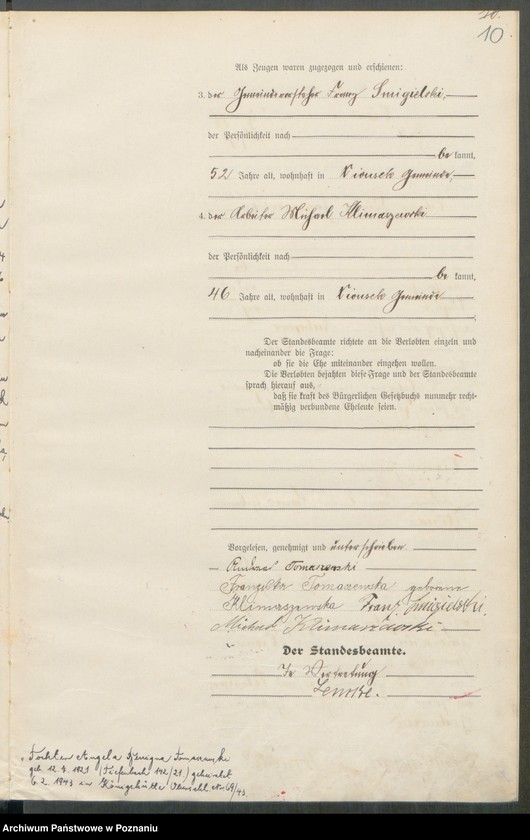 10
Als Zeugen waren zugezogen und erschienen:
3. der Gemeindevorsteher Franz Smigielski,
der Persönlichkeit nach
be kannt,
52 Jahre alt, wohnhaft in Gemeinde,
4. der Arbeiter Michael Klimaszewski
der Persönlichkeit nach
be kannt,
46 Jahre alt, wohnhaft in Gemeinde
Der Standesbeamte richtete an die Verlobten einzeln und
nacheinander die Frage:
ob sie die Ehe miteinander eingehen wollen.
Die Verlobten bejahten diese Frage und der Standesbeamte
sprach hierauf aus,
daß sie kraft des Bürgerlichen Gesetzbuchs nunmehr recht-
mäßig verbundene Eheleute seien.
Vorgelesen, genehmigt und unterschrieben
Tomaszewski
Tomaszewska geborene
Klimaszewska Franz Smigielski,
Michael Klimaszewski
Der Standesbeamte.
In Vertretung
Lemke.
Tochter Angela
geb. 12. 1921 (142/21) geheiratet
6. 2. 1943 in Königshütte Oberschl. 43.
Archiwum Państwowe w Poznaniu